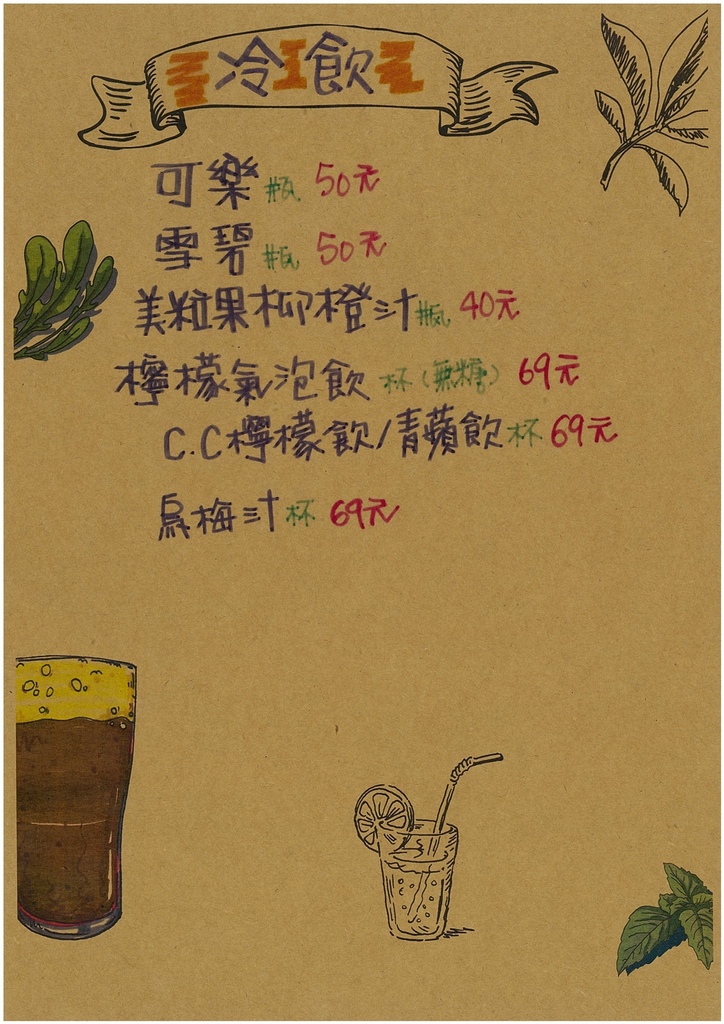 冷飲
可樂 瓶 50元
雪碧 瓶 50元
美粒果柳橙汁 瓶 40元
檸檬氣泡飲 杯(無糖) 69元
C.C檸檬飲/青蘋飲 杯 69元
烏梅汁 杯 69元